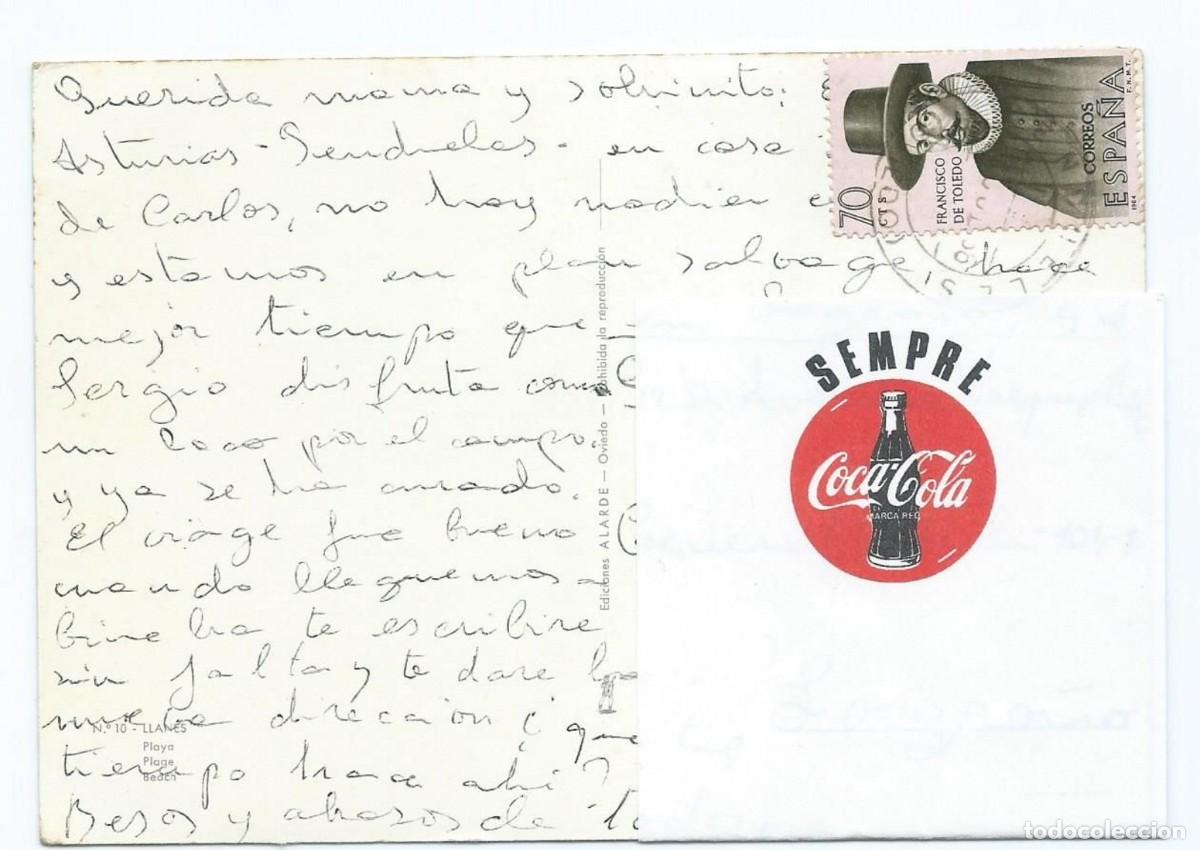 Querida mama y sobrinito:
Asturias - Pendueles - en casa
de Carlos, no hay nadien
y estamos en plan salvage, hace
mejor tiempo que
Sergio disfruta como
un loco por el campo.
y ya se ha curado.
El viage fue bueno
cuando lleguemos a
bine bra te escribire
sin falta y te dare la
nueva direccion ¿que
tiempo hace ahi?
Besos y abrazos de
Nº 10 - LLANES
Playa
Plage
Beach
Ediciones ALARDE - Oviedo - Prohibida la reproducción
70 CTS
FRANCISCO
DE TOLEDO
CORREOS
ESPAÑA
F.N.M.T.
1964
SEMPRE
Coca-Cola
MARCA REG
todocoleccion